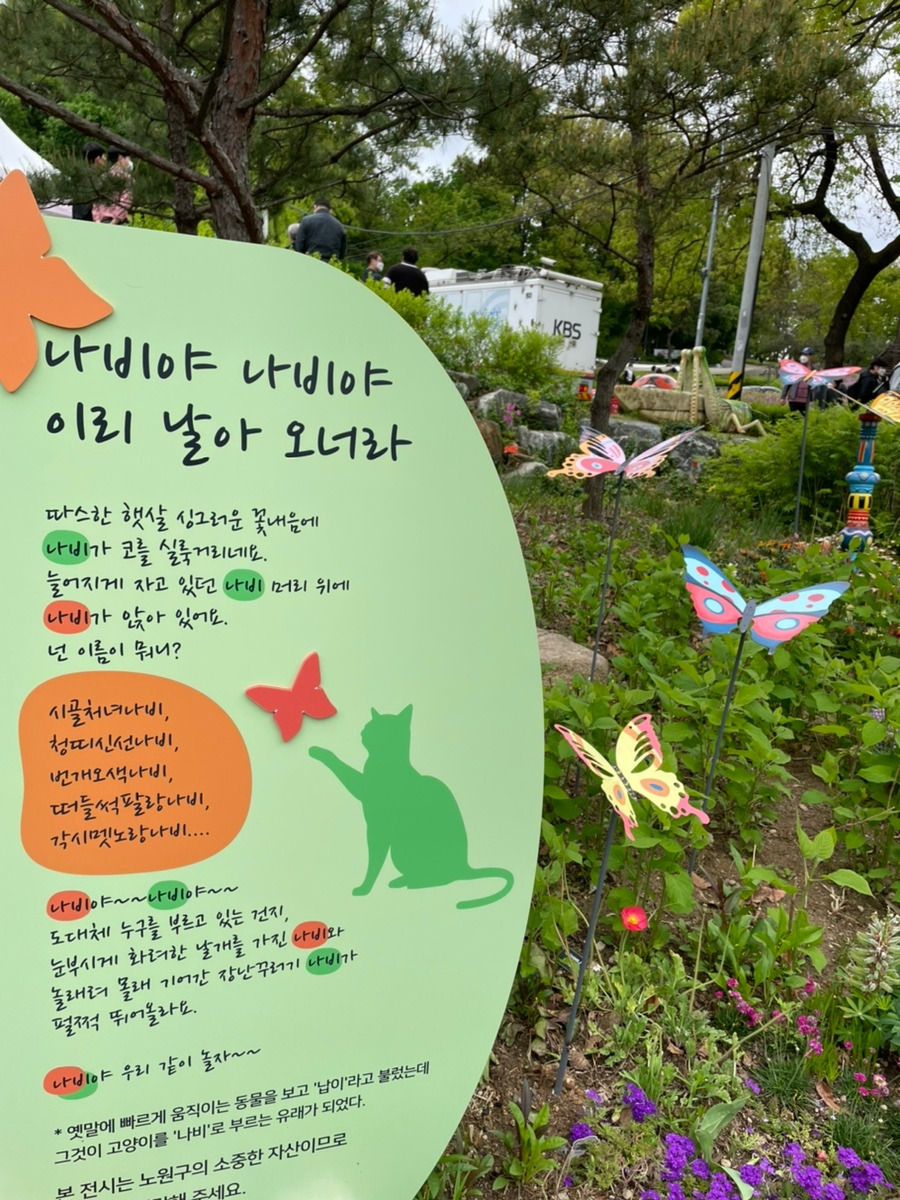 나비야 나비야
이리 날아 오너라
따스한 햇살 싱그러운 꽃내음에
나비가 코를 실룩거리네요.
늘어지게 자고 있던 나비 머리 위에
나비가 앉아 있어요.
넌 이름이 뭐니?
시골처녀나비,
청띠신선나비,
번개오색나비,
떠들썩팔랑나비,
각시멧노랑나비....
나비야~~나비야~~
도대체 누구를 부르고 있는 건지,
눈부시게 화려한 날개를 가진 나비와
놀래려 몰래 기어간 장난꾸러기 나비가
펄쩍 뛰어올라요.
나비야 우리 같이 놀자~~
* 옛말에 빠르게 움직이는 동물을 보고 '납이'라고 불렀는데
그것이 고양이를 '나비'로 부르는 유래가 되었다.
본 전시는 노원구의 소중한 자산이므로
주세요.
KBS